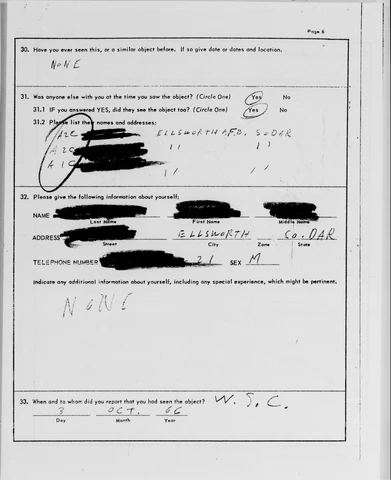 Page 6
30. Have you ever seen this, or a similar object before. If so give date or dates and location.
NONE
31. Was anyone else with you at the time you saw the object? (Circle One) Yes No
31.1 IF you answered YES, did they see the object too? (Circle One) Yes No
31.2 Please list their names and addresses:
A2C ELLSWORTH A.F.B. So DAR
A2C " "
A1C " "
32. Please give the following information about yourself:
NAME
Last Name First Name Middle Name
ADDRESS ELLSWORTH So. DAR
Street City Zone State
TELEPHONE NUMBER 21 SEX M
Indicate any additional information about yourself, including any special experience, which might be pertinent.
NONE
33. When and to whom did you report that you had seen the object? W. S. C.
3 OCT. 66
Day Month Year